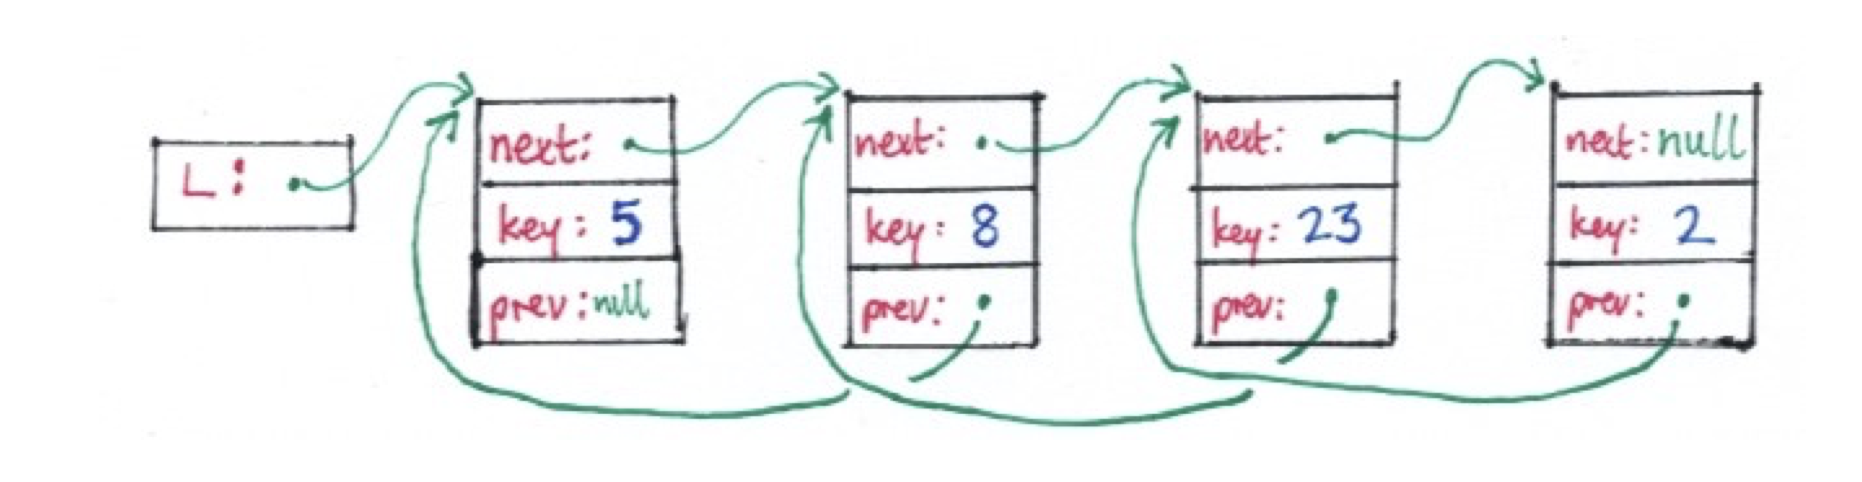 L:
next:
key: 5
prev: null
next:
key: 8
prev:
next:
key: 23
prev:
next: null
key: 2
prev: